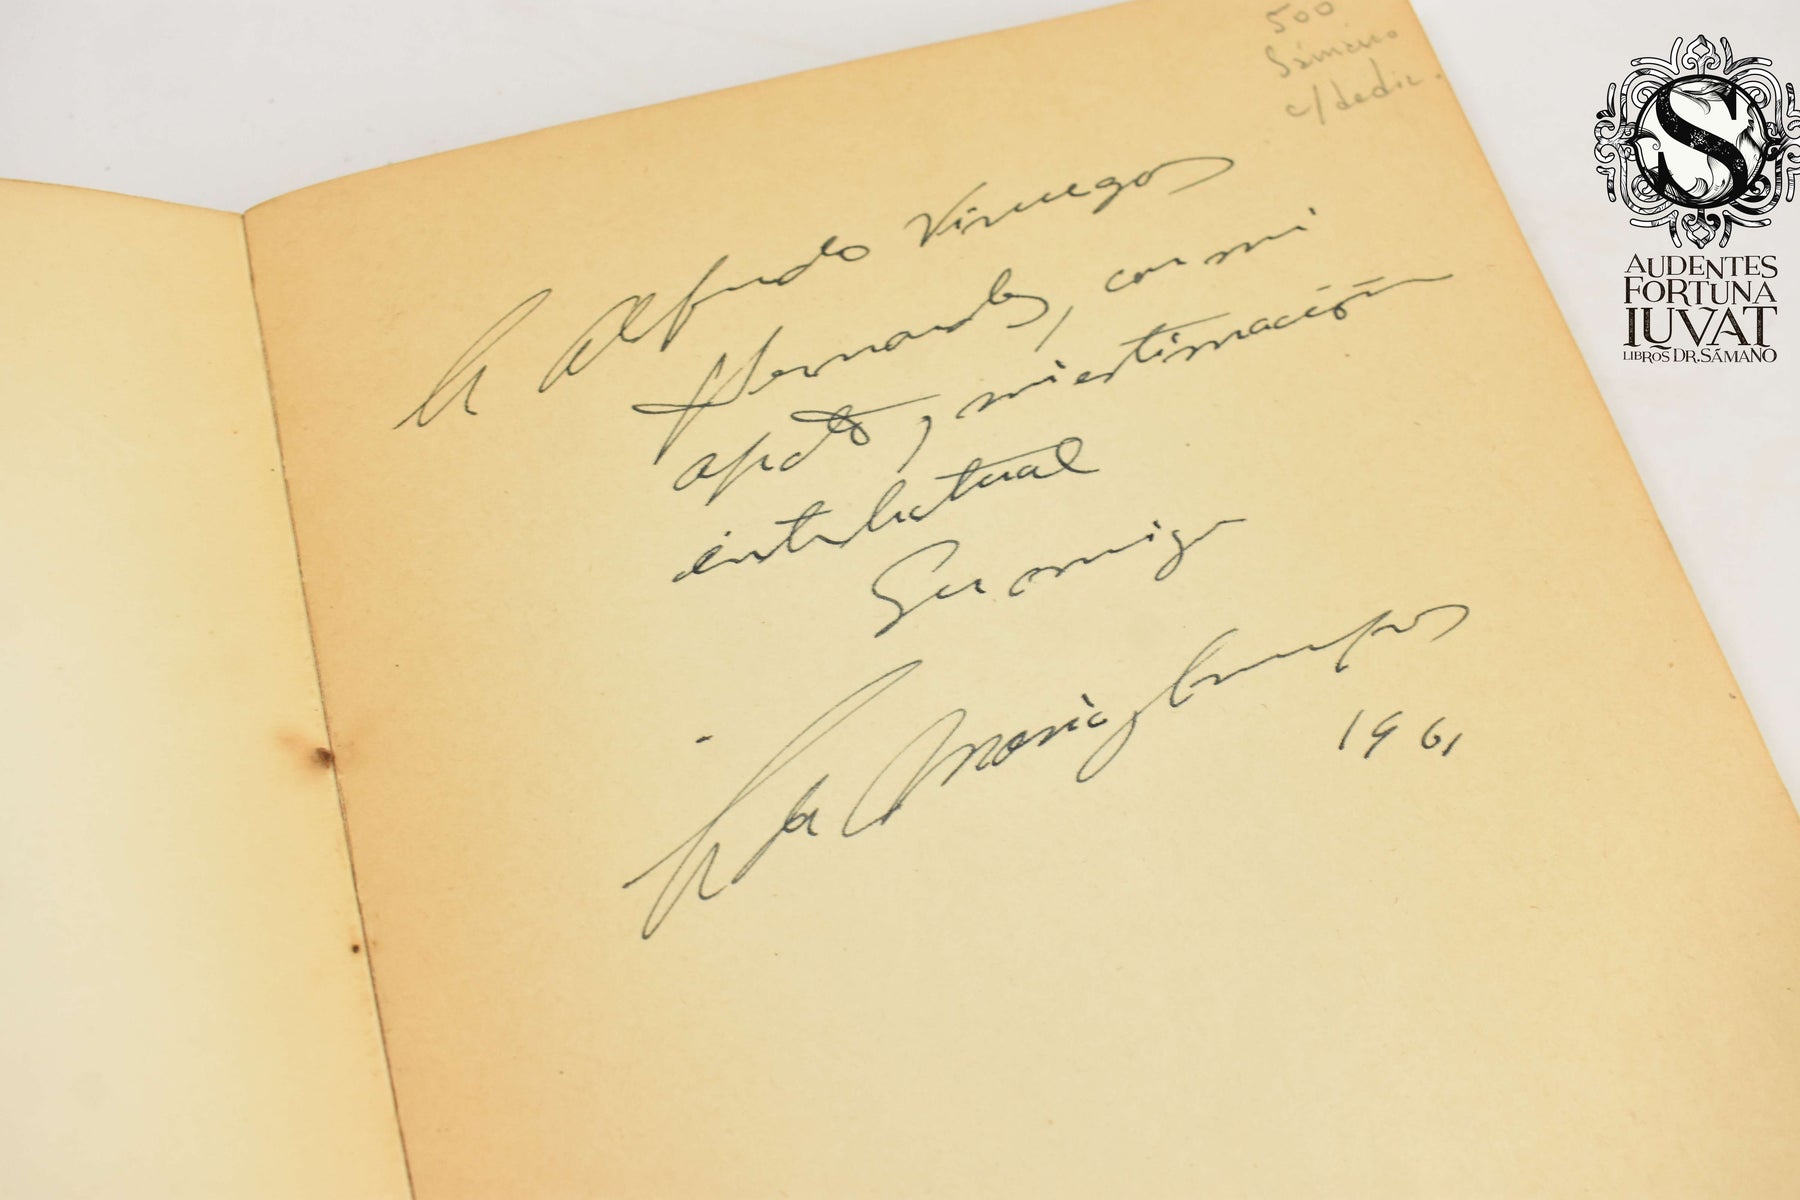 500
Sámano
c/dedic.
A Alfredo Viruegas
Hernandez, con mi
afecto, mi estimación
intelectual
Su amiga
María
1961
AUDENTES
FORTUNA
IUVAT
LIBROS DR. SÁMANO